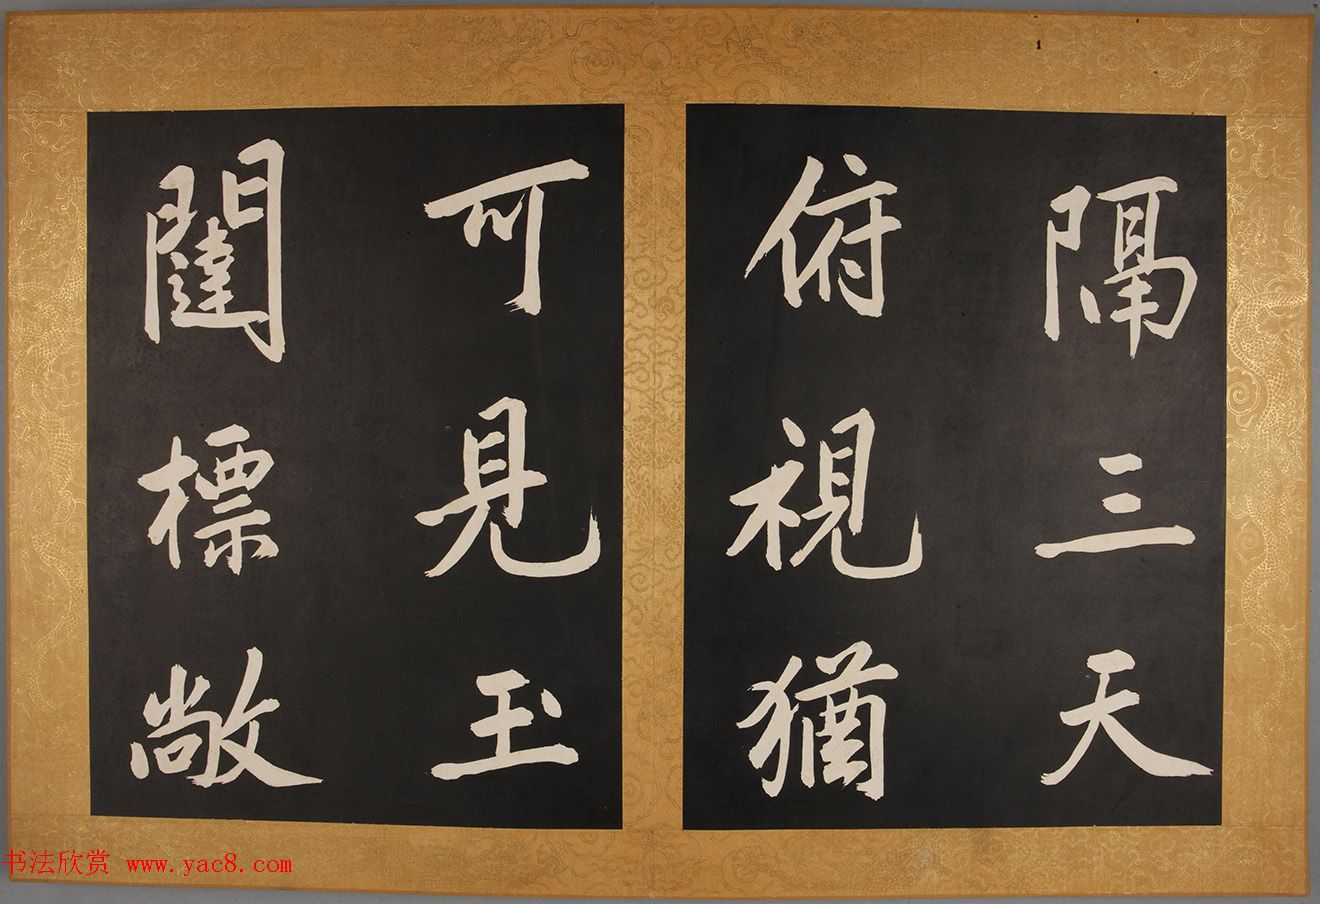 隔三天
俯視猶
可見玉
闥標敞
书法欣赏 www.yac8.com